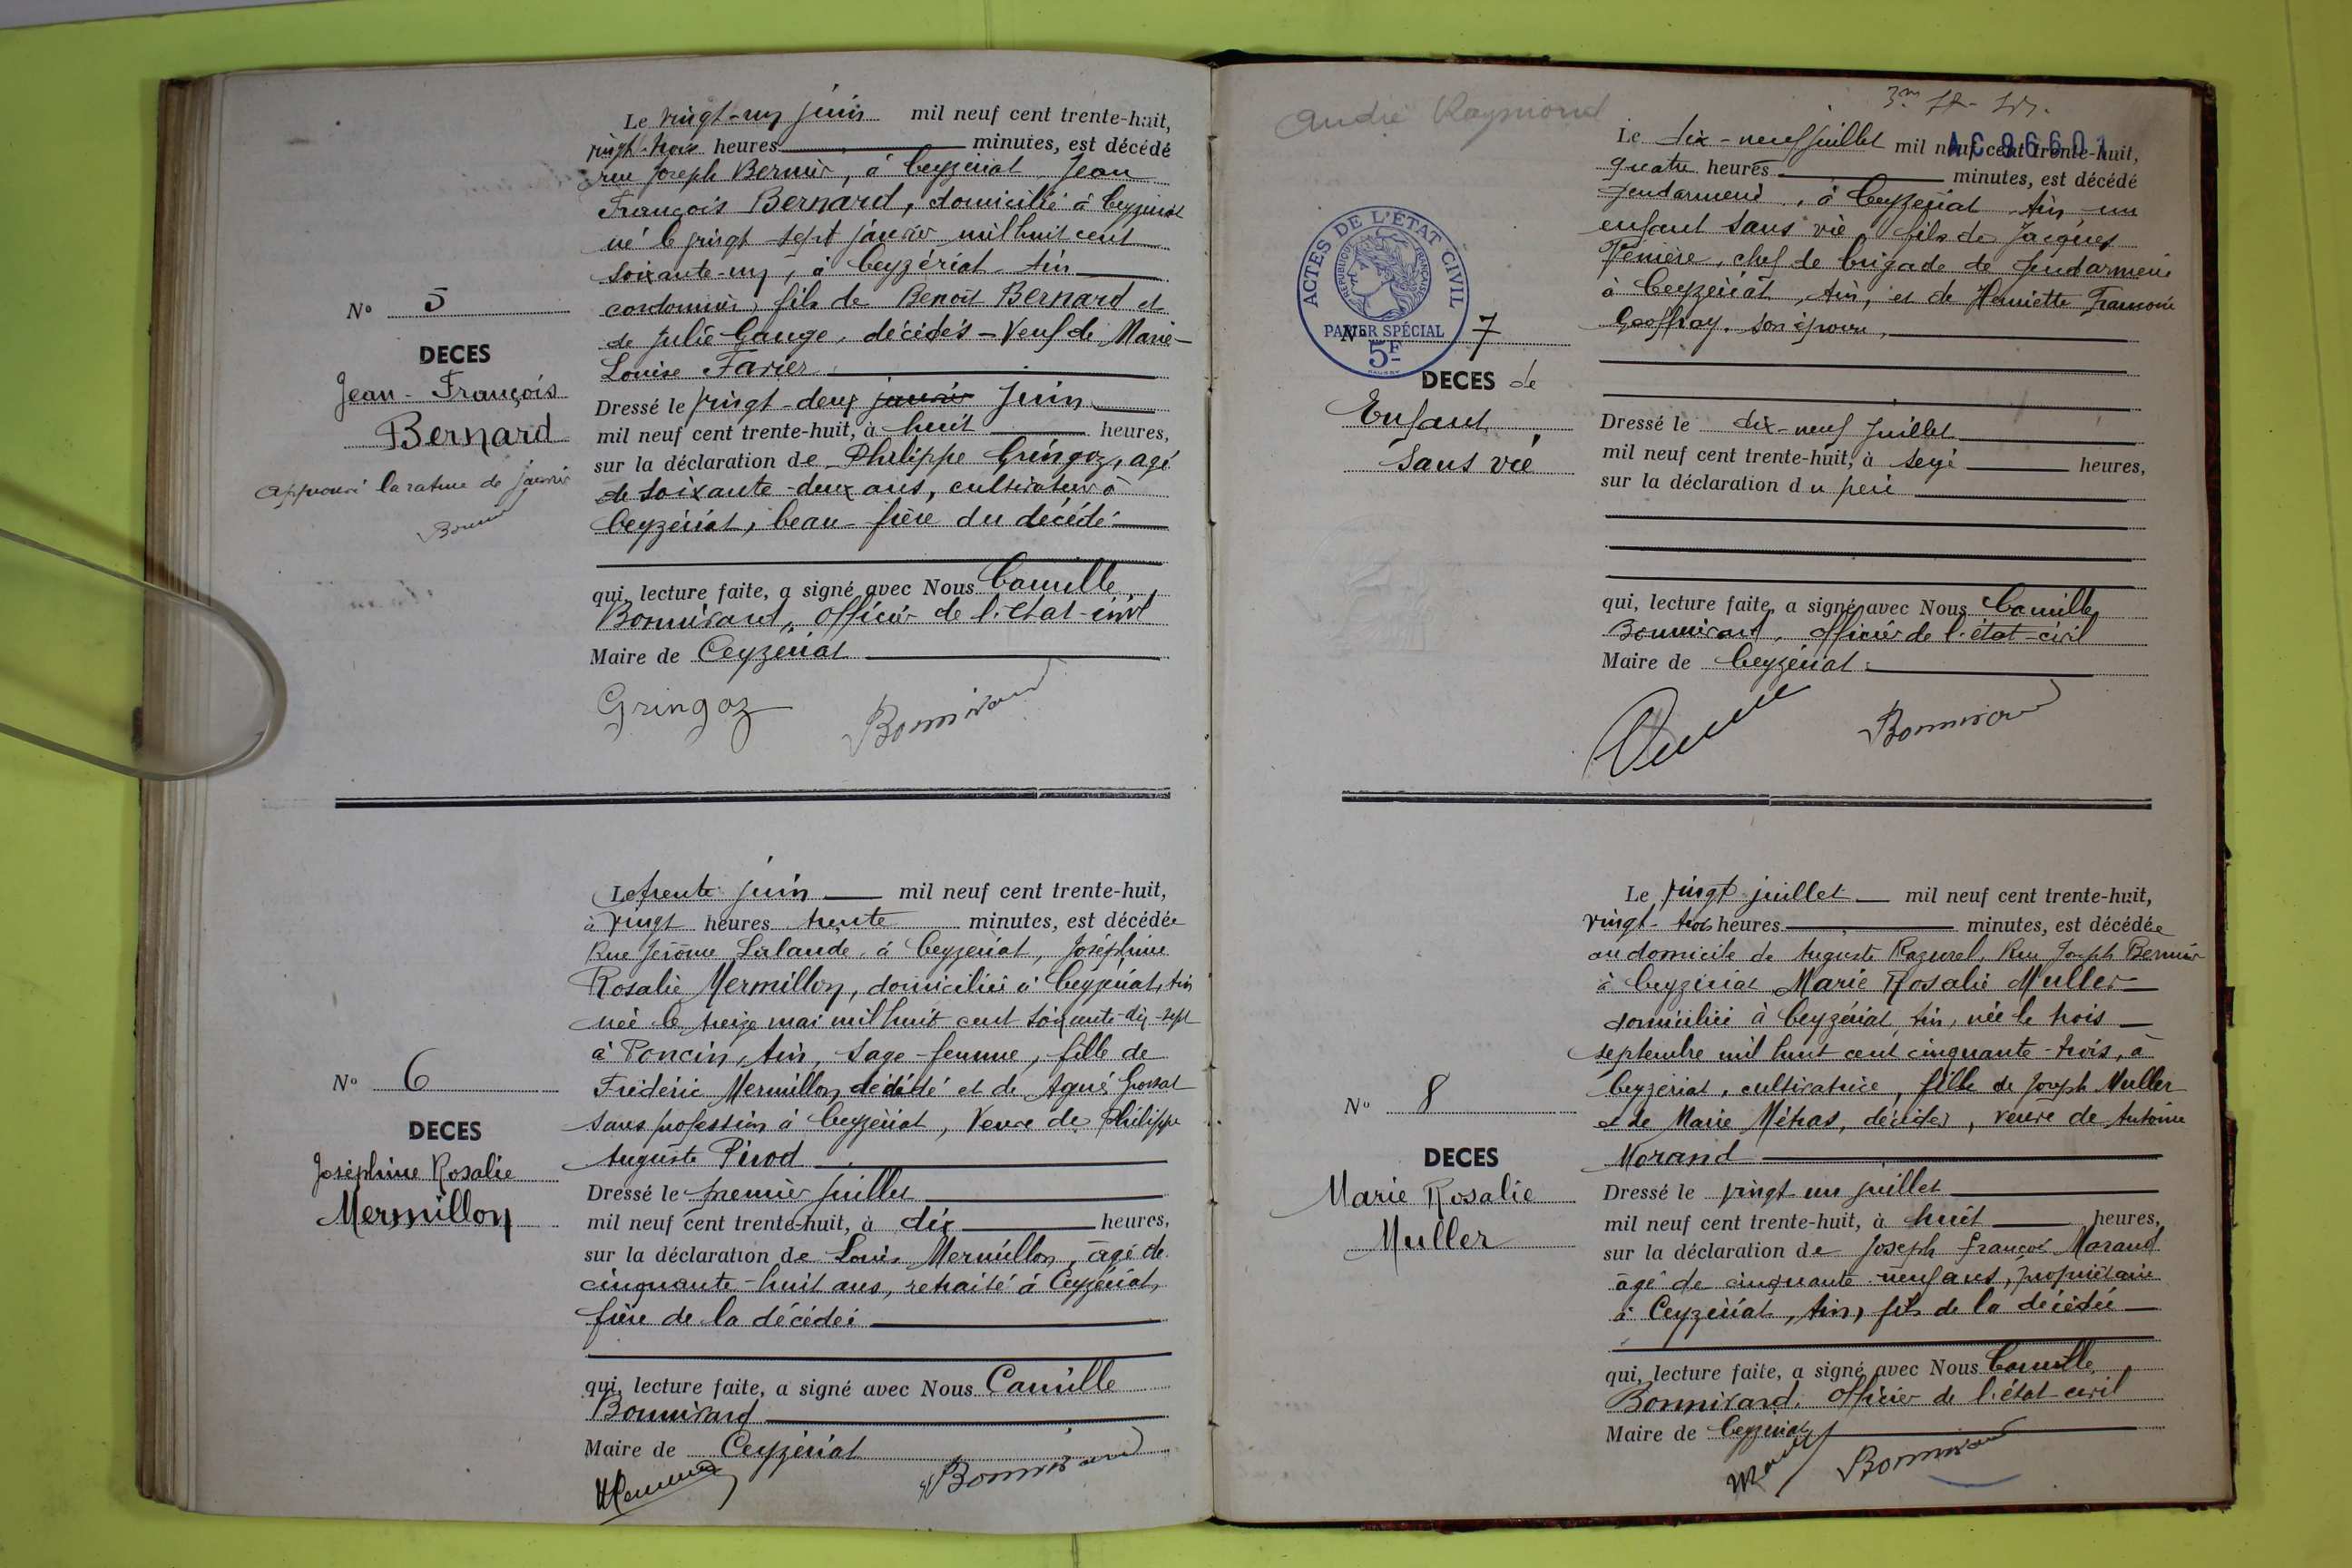 Le vingt-un juin mil neuf cent trente-huit,
vingt-trois heures minutes, est décédé
rue Joseph Bernier, à Ceyzériat, Jean
François Bernard, domicilié à Ceyzériat
né le vingt sept janvier mil huit cent
soixante-un, à Ceyzériat Ain
cordonnier, fils de Benoît Bernard et
de Julie Gauge, décédés - Veuf de Marie-
Louise Favier
Nº 5
DECES
Jean-François
Bernard
approuvé la rature de janvier
Dressé le vingt-deux janvier juin
mil neuf cent trente-huit, à huit heures,
sur la déclaration de Philippe Gringoz, agé
de soixante-deux ans, cultivateur à
Ceyzériat, beau-frère du décédé
qui, lecture faite, a signé avec Nous Camille
Bonnivard, officier de l'état-civil
Maire de Ceyzériat
Gringoz Bonnivard
Le trente juin mil neuf cent trente-huit,
à vingt heures trente minutes, est décédée
Rue Jérôme Lalande, à Ceyzériat, Joséphine
Rosalie Mermillon, domiciliée à Ceyzériat, Ain
née le treize mai mil huit cent soixante-dix-sept
à Poncin, Ain, sage-femme, fille de
Frédéric Mermillon décédé et de Agnès Grossat
sans profession à Ceyzériat, Veuve de Philippe
Auguste Pirod
Nº 6
DECES
Joséphine Rosalie
Mermillon
Dressé le premier juillet
mil neuf cent trente-huit, à dix heures,
sur la déclaration de Louis Mermillon, âgé de
cinquante-huit ans, retraité à Ceyzériat,
frère de la décédée
qui, lecture faite, a signé avec Nous Camille
Bonnivard
Maire de Ceyzériat
Bonnivard
André Raymond
AC 96601
Le dix-neuf juillet mil neuf cent trente-huit,
quatre heures minutes, est décédé
gendarmerie, à Ceyzériat Ain un
enfant sans vie, fils de Jacques
chef de brigade de gendarmerie
à Ceyzériat, Ain, et de Henriette Françoise
Geoffray, son épouse,
ACTES DE L'ÉTAT CIVIL
RÉPUBLIQUE FRANÇAISE
PAPIER SPÉCIAL
5F
Nº 7
DECES de
Enfant
Sans vie
Dressé le dix-neuf juillet
mil neuf cent trente-huit, à seize heures,
sur la déclaration du père
qui, lecture faite, a signé avec Nous Camille
Bonnivard, officier de l'état-civil
Maire de Ceyzériat
Bonnivard
Le vingt juillet mil neuf cent trente-huit,
vingt-trois heures minutes, est décédée
au domicile de Auguste Razurel, Rue Joseph Bernier
à Ceyzériat Marie Rosalie Muller
domiciliée à Ceyzériat, Ain, née le trois
septembre mil huit cent cinquante-trois, à
Ceyzériat, cultivatrice, fille de Joseph Muller
et de Marie Métras, décédés, veuve de Antoine
Morand
Nº 8
DECES
Marie Rosalie
Muller
Dressé le vingt un juillet
mil neuf cent trente-huit, à huit heures,
sur la déclaration de Joseph François Morand
âgé de cinquante-neuf ans, propriétaire
à Ceyzériat, Ain, fils de la décédée
qui, lecture faite, a signé avec Nous Camille
Bonnivard, officier de l'état-civil
Maire de Ceyzériat
Bonnivard